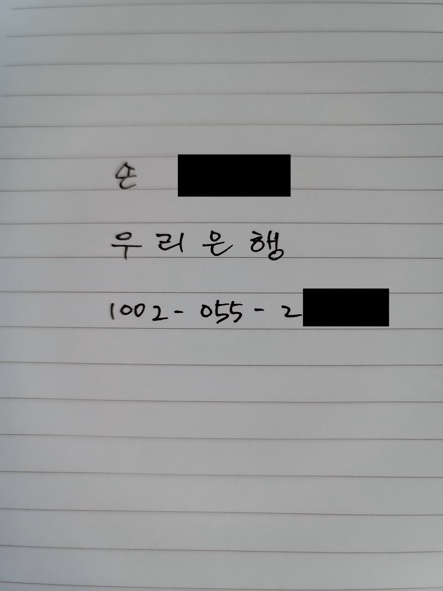 손
우리은행
1002-055-2